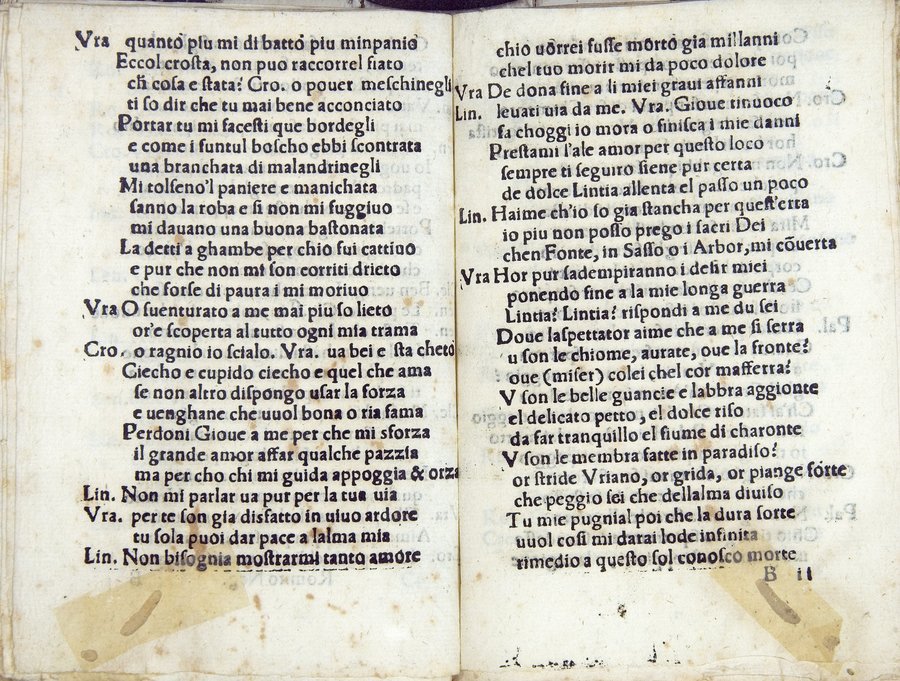 Vra quanto piu mi di batto piu minpanio
Eccol crosta, non puo raccorrel fiato
ch̄ cosa e stata? Cro. o pouer meschinegli
ti so dir che tu mai bene acconciato
Portar tu mi facesti que bordegli
e come i funtul boscho ebbi scontrata
una branchata di malandrinegli
Mi tolseno'l paniere e manichata
sanno la roba e si non mi fuggiuo
mi dauano una buona bastonata
La detti a ghambe per chio fui cattiuo
e pur che non mi son corriti drieto
che forse di paura i mi moriuo
Vra O suenturato a me mai piu so lieto
or'e scoperta al tutto ogni mia trama
Cro. o ragnio io scialo. Vra. ua bei e sta cheto
Ciecho e cupido ciecho e quel che ama
se non altro dispongo usar la forza
e uenghane che uuol bona o ria fama
Perdoni Gioue a me per che mi sforza
il grande amor affar qualche pazzia
ma per cho chi mi guida appoggia & orza
Lin. Non mi parlar ua pur per la tua uia
Vra. per te son gia disfatto in uiuo ardore
tu sola puoi dar pace a lalma mia
Lin. Non bisognia mostrarmi tanto amore
chio uorrei fusse morto gia millanni
chel tuo morir mi da poco dolore
Vra De dona fine a li miei graui affanni
Lin. leuati uia da me. Vra. Gioue tinuoco
fa choggi io mora o finisca i mie danni
Prestami l'ale amor per questo loco
sempre ti seguiro siene pur certa
de dolce Lintia allenta el passo un poco
Lin. Haime ch'io so gia stancha per quest'erta
io piu non posso prego i sacri Dei
chen Fonte, in Sasso o i Arbor, mi cōuerta
Vra Hor pur sadempiranno i desir miei
ponendo fine a la mie longa guerra
Lintia? Lintia? rispondi a me du sei
Doue laspettator aime che a me si serra
u son le chiome, aurate, oue la fronte?
oue (miser) colei chel cor mafferra?
V son le belle guancie e labbra aggionte
el delicato petto, el dolce riso
da far tranquillo el fiume di charonte
V son le membra fatte in paradiso?
or stride Vriano, or grida, or piange forte
che peggio sei che dellalma diuiso
Tu mie pugnial poi che la dura sorte
uuol cosi mi darai lode infinita
rimedio a questo sol conosco morte
B ii